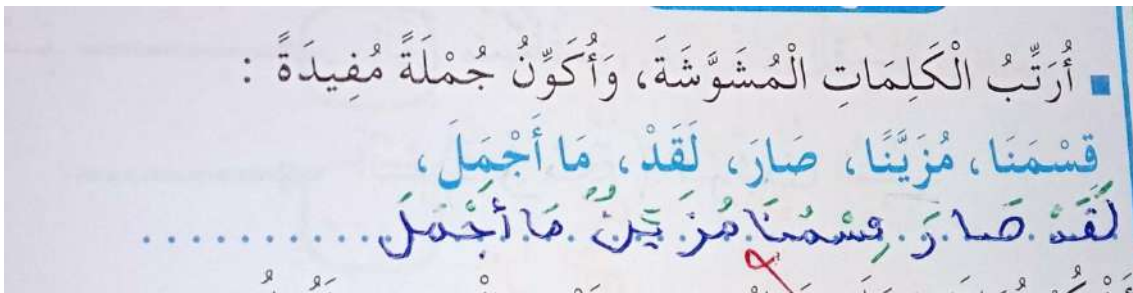 ▪ أُرَتِّبُ الْكَلِمَاتِ الْمُشَوَّشَةَ، وَأُكَوِّنُ جُمْلَةً مُفِيدَةً :
قِسْمَنَا، مُزَيَّنًا، صَارَ، لَقَدْ، مَا أَجْمَلَ،
لَقَدْ صَارَ قِسْمُنَا مُزَيَّنٌ مَا أَجْمَلَ...........